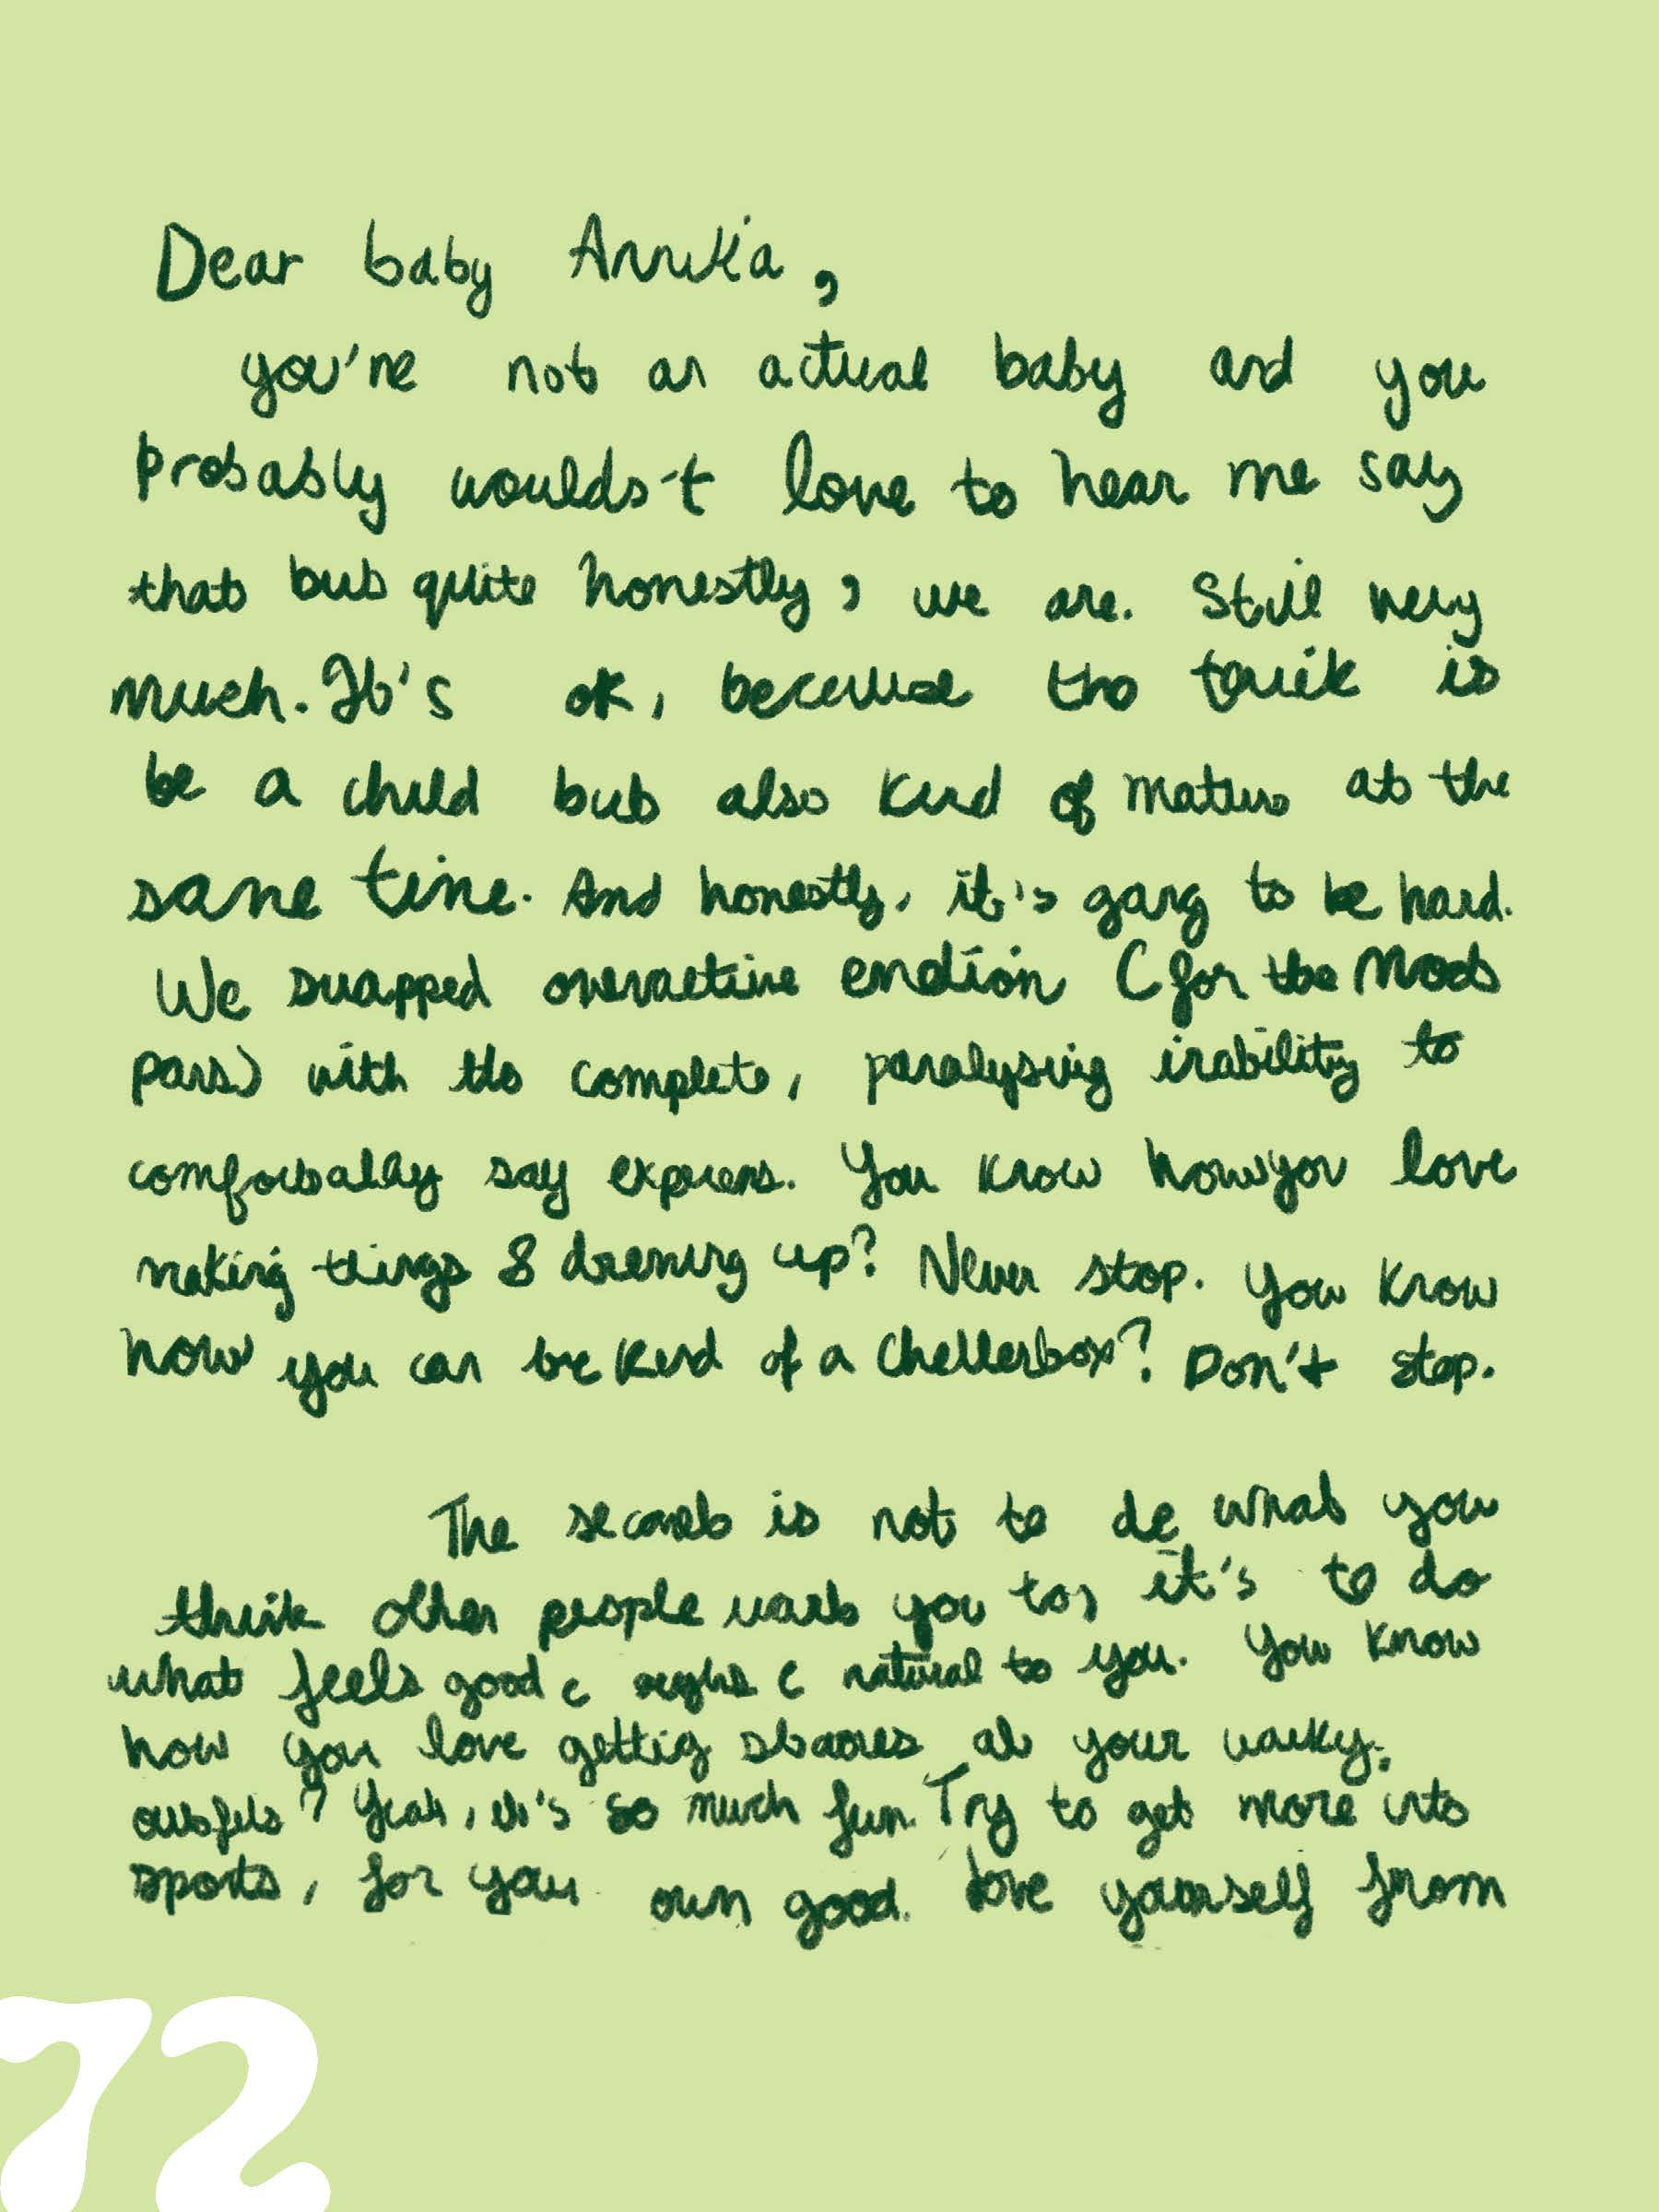 Dear baby Annika,
you're not an actual baby and you
probably wouldn't love to hear me say
that but quite honestly, we are. Still very
much. It's ok, because the trick is
be a child but also kind of mature at the
same time. And honestly, it's going to be hard.
We swapped overactive emotion (for the most
part) with the complete, paralysing inability to
comfortably say express. You know how you love
making things & dressing up? Never stop. You know
how you can be kind of a chatterbox? Don't stop.
The secret is not to do what you
think other people want you to, it's to do
what feels good & right & natural to you. You know
how you love getting stares at your wacky
outfits? Yeah, it's so much fun. Try to get more into
sports, for your own good. Love yourself from
72